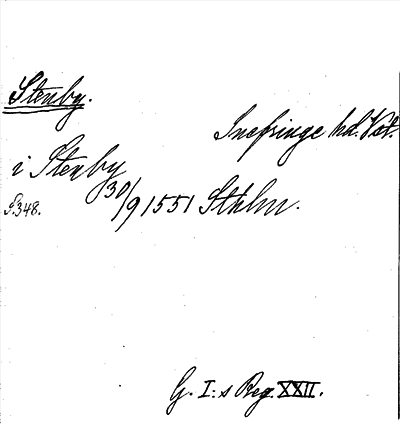 Stenby.
Snefringe hd. Vst.
i Stenby
30/9 1551 Sthlm.
S.348.
G. I:s Reg. XXII.